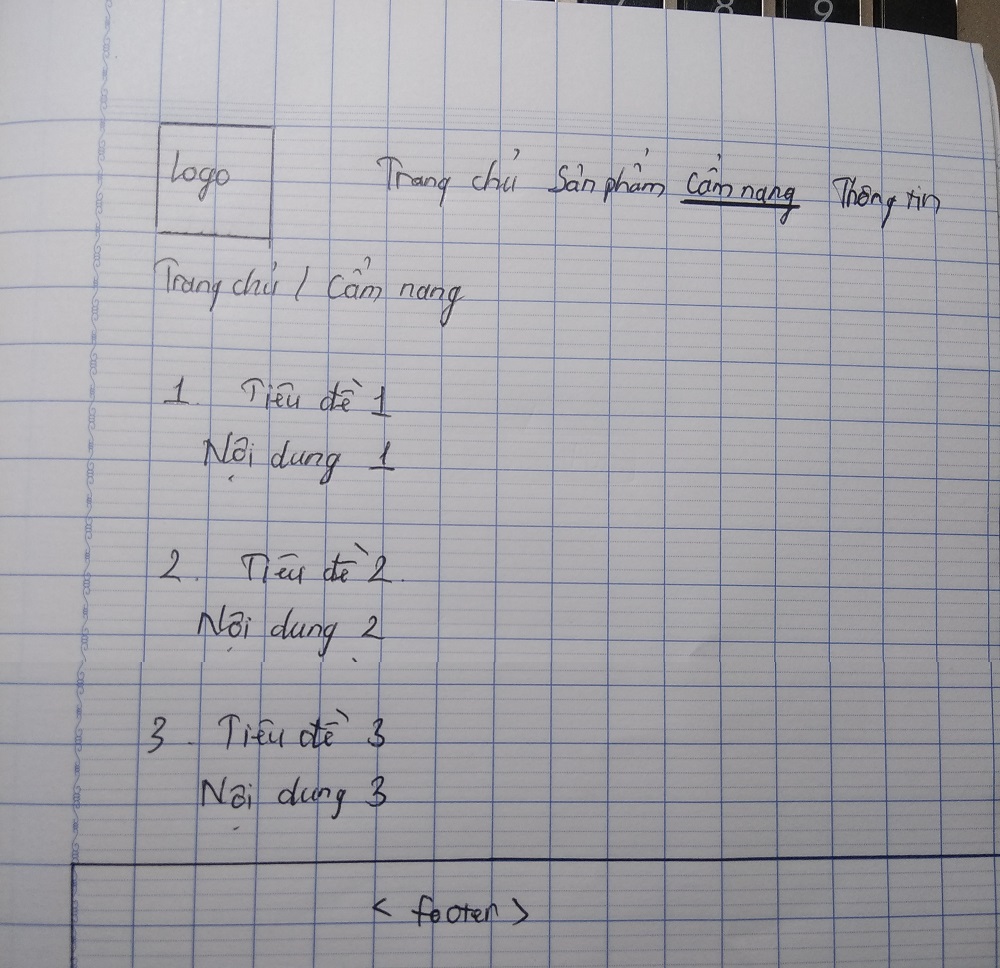 8 9
Logo
Trang chủ Sản phẩm Cẩm nang Thông tin
Trang chủ / Cẩm nang
1. Tiêu đề 1
Nội dung 1
2. Tiêu đề 2.
Nội dung 2
3. Tiêu đề 3
Nội dung 3
< footer >